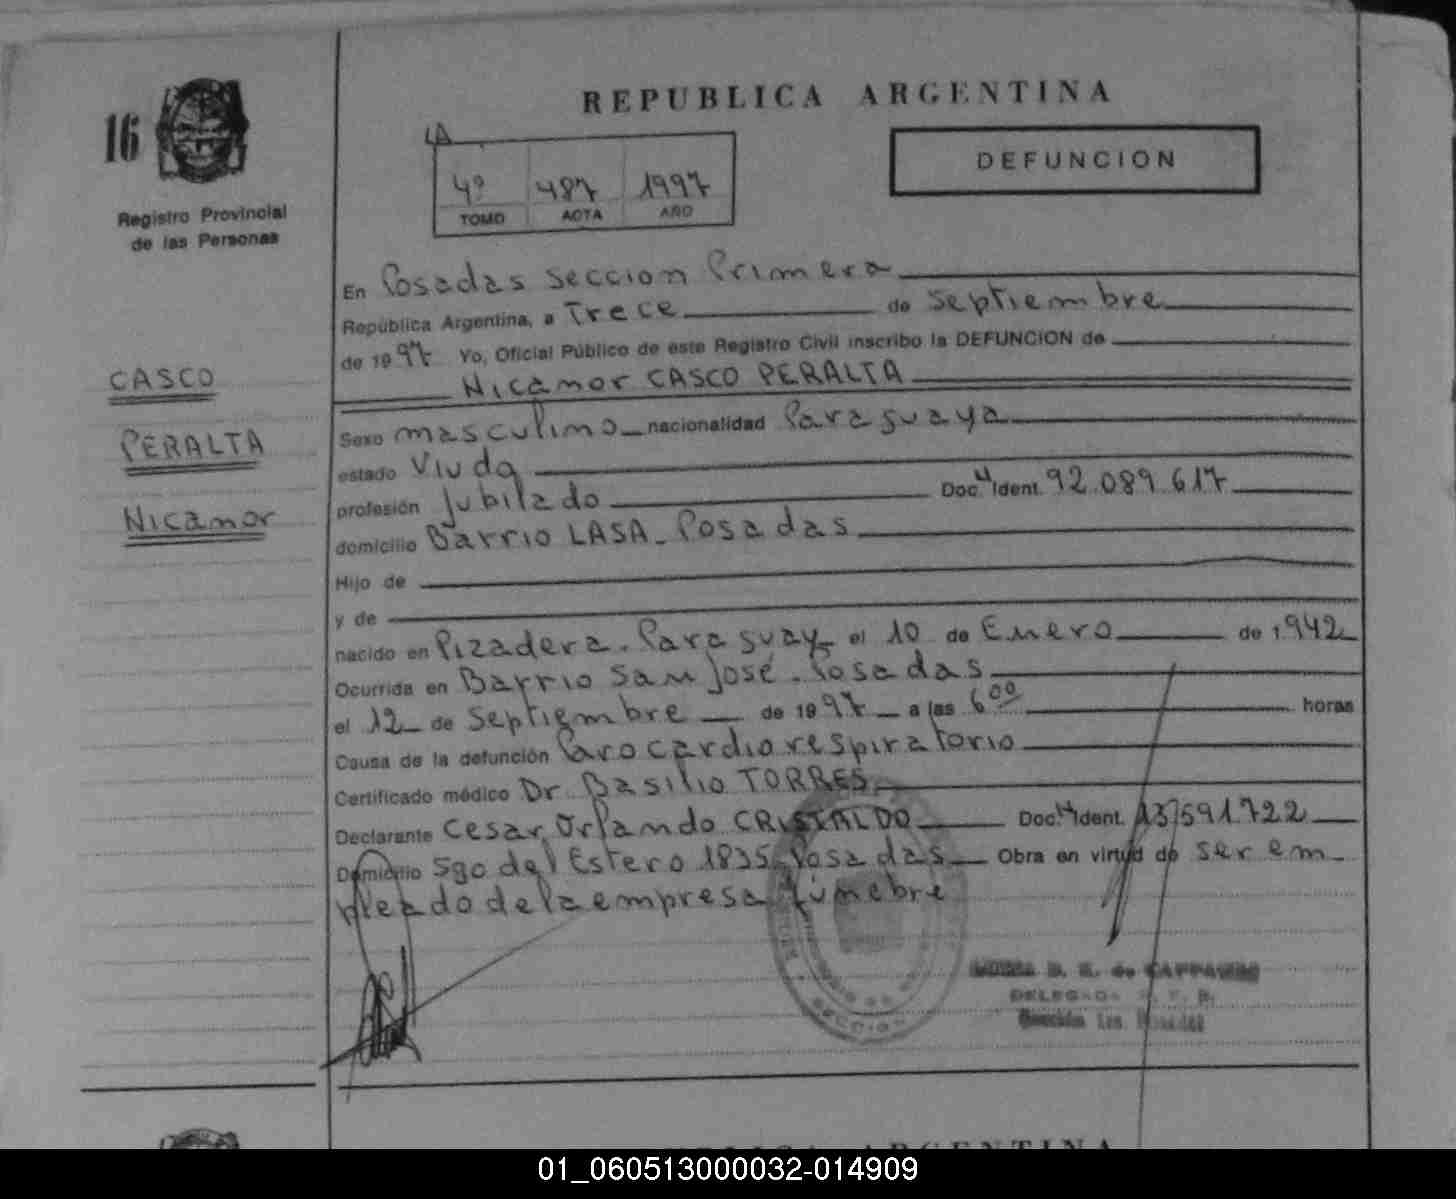 REPUBLICA ARGENTINA
16
Registro Provincial
de las Personas
4º 487 1997
TOMO ACTA AÑO
DEFUNCION
CASCO
PERALTA
Nicanor
En Posadas seccion Primera
República Argentina, a Trece de Septiembre
de 1997 Yo, Oficial Público de este Registro Civil inscribo la DEFUNCION de
Nicanor CASCO PERALTA
Sexo masculino nacionalidad Paraguaya
estado Viudo
profesión Jubilado Doc. Ident. 92.089.617
domicilio Barrio LASA - Posadas
Hijo de
y de
nacido en Pizadera. Paraguay el 10 de Enero de 1942
Ocurrida en Barrio San José. Posadas
el 12 de Septiembre de 1997 a las 6 00 horas
Causa de la defunción Paro cardiorespiratorio
Certificado médico Dr. Basilio TORRES
Declarante Cesar Orlando CRISTALDO Doc. Ident. 13.591.722
Domicilio Sgo del Estero 1835 Posadas Obra en virtud de ser em-
pleado de la empresa fúnebre
SECCION
DELEGADA
Sección 1ra. Posadas
ARGENTINA
01_060513000032-014909